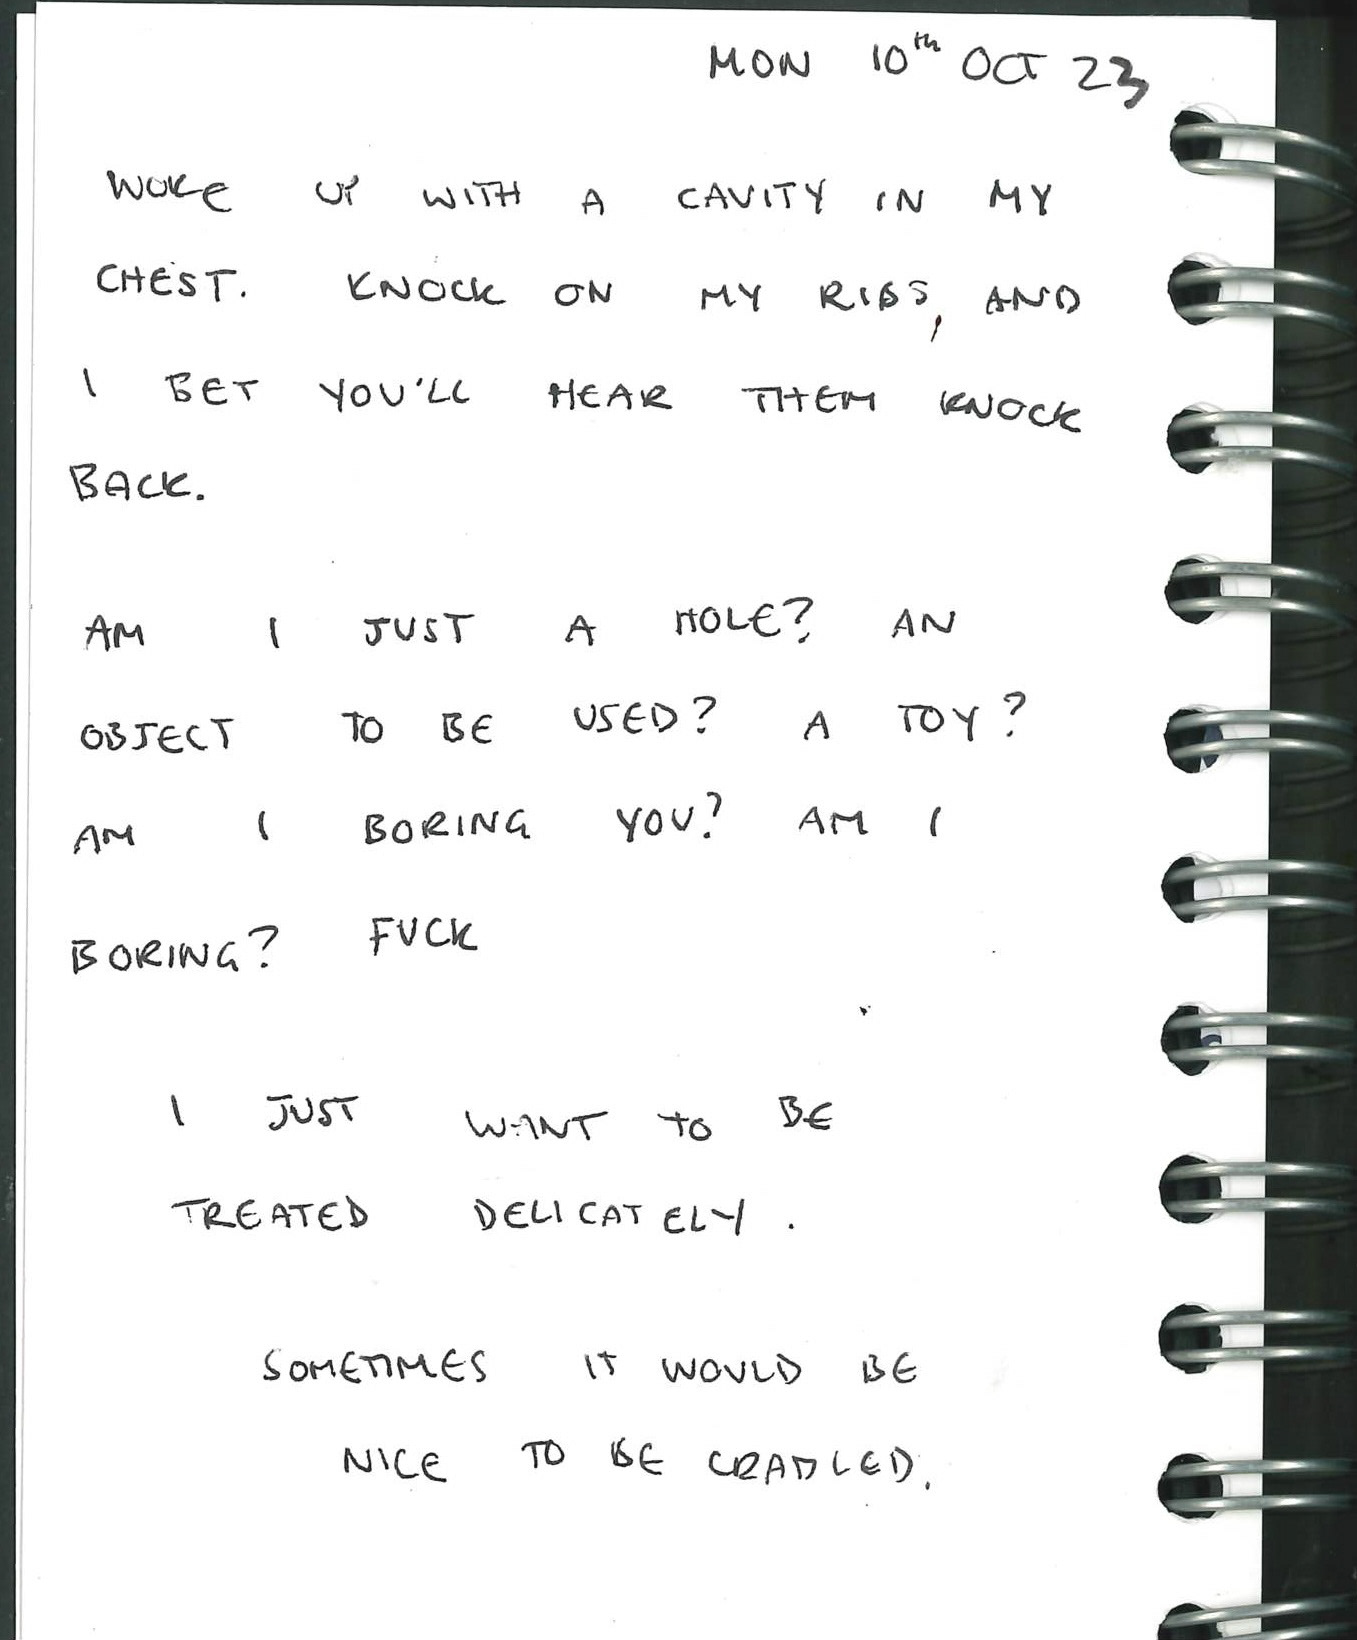 MON 10th OCT 23
WOKE UP WITH A CAVITY IN MY
CHEST. KNOCK ON MY RIBS, AND
I BET YOU'LL HEAR THEM KNOCK
BACK.
AM I JUST A HOLE? AN
OBJECT TO BE USED? A TOY?
AM I BORING YOU? AM I
BORING? FUCK
I JUST WANT TO BE
TREATED DELICATELY.
SOMETIMES IT WOULD BE
NICE TO BE CRADLED.